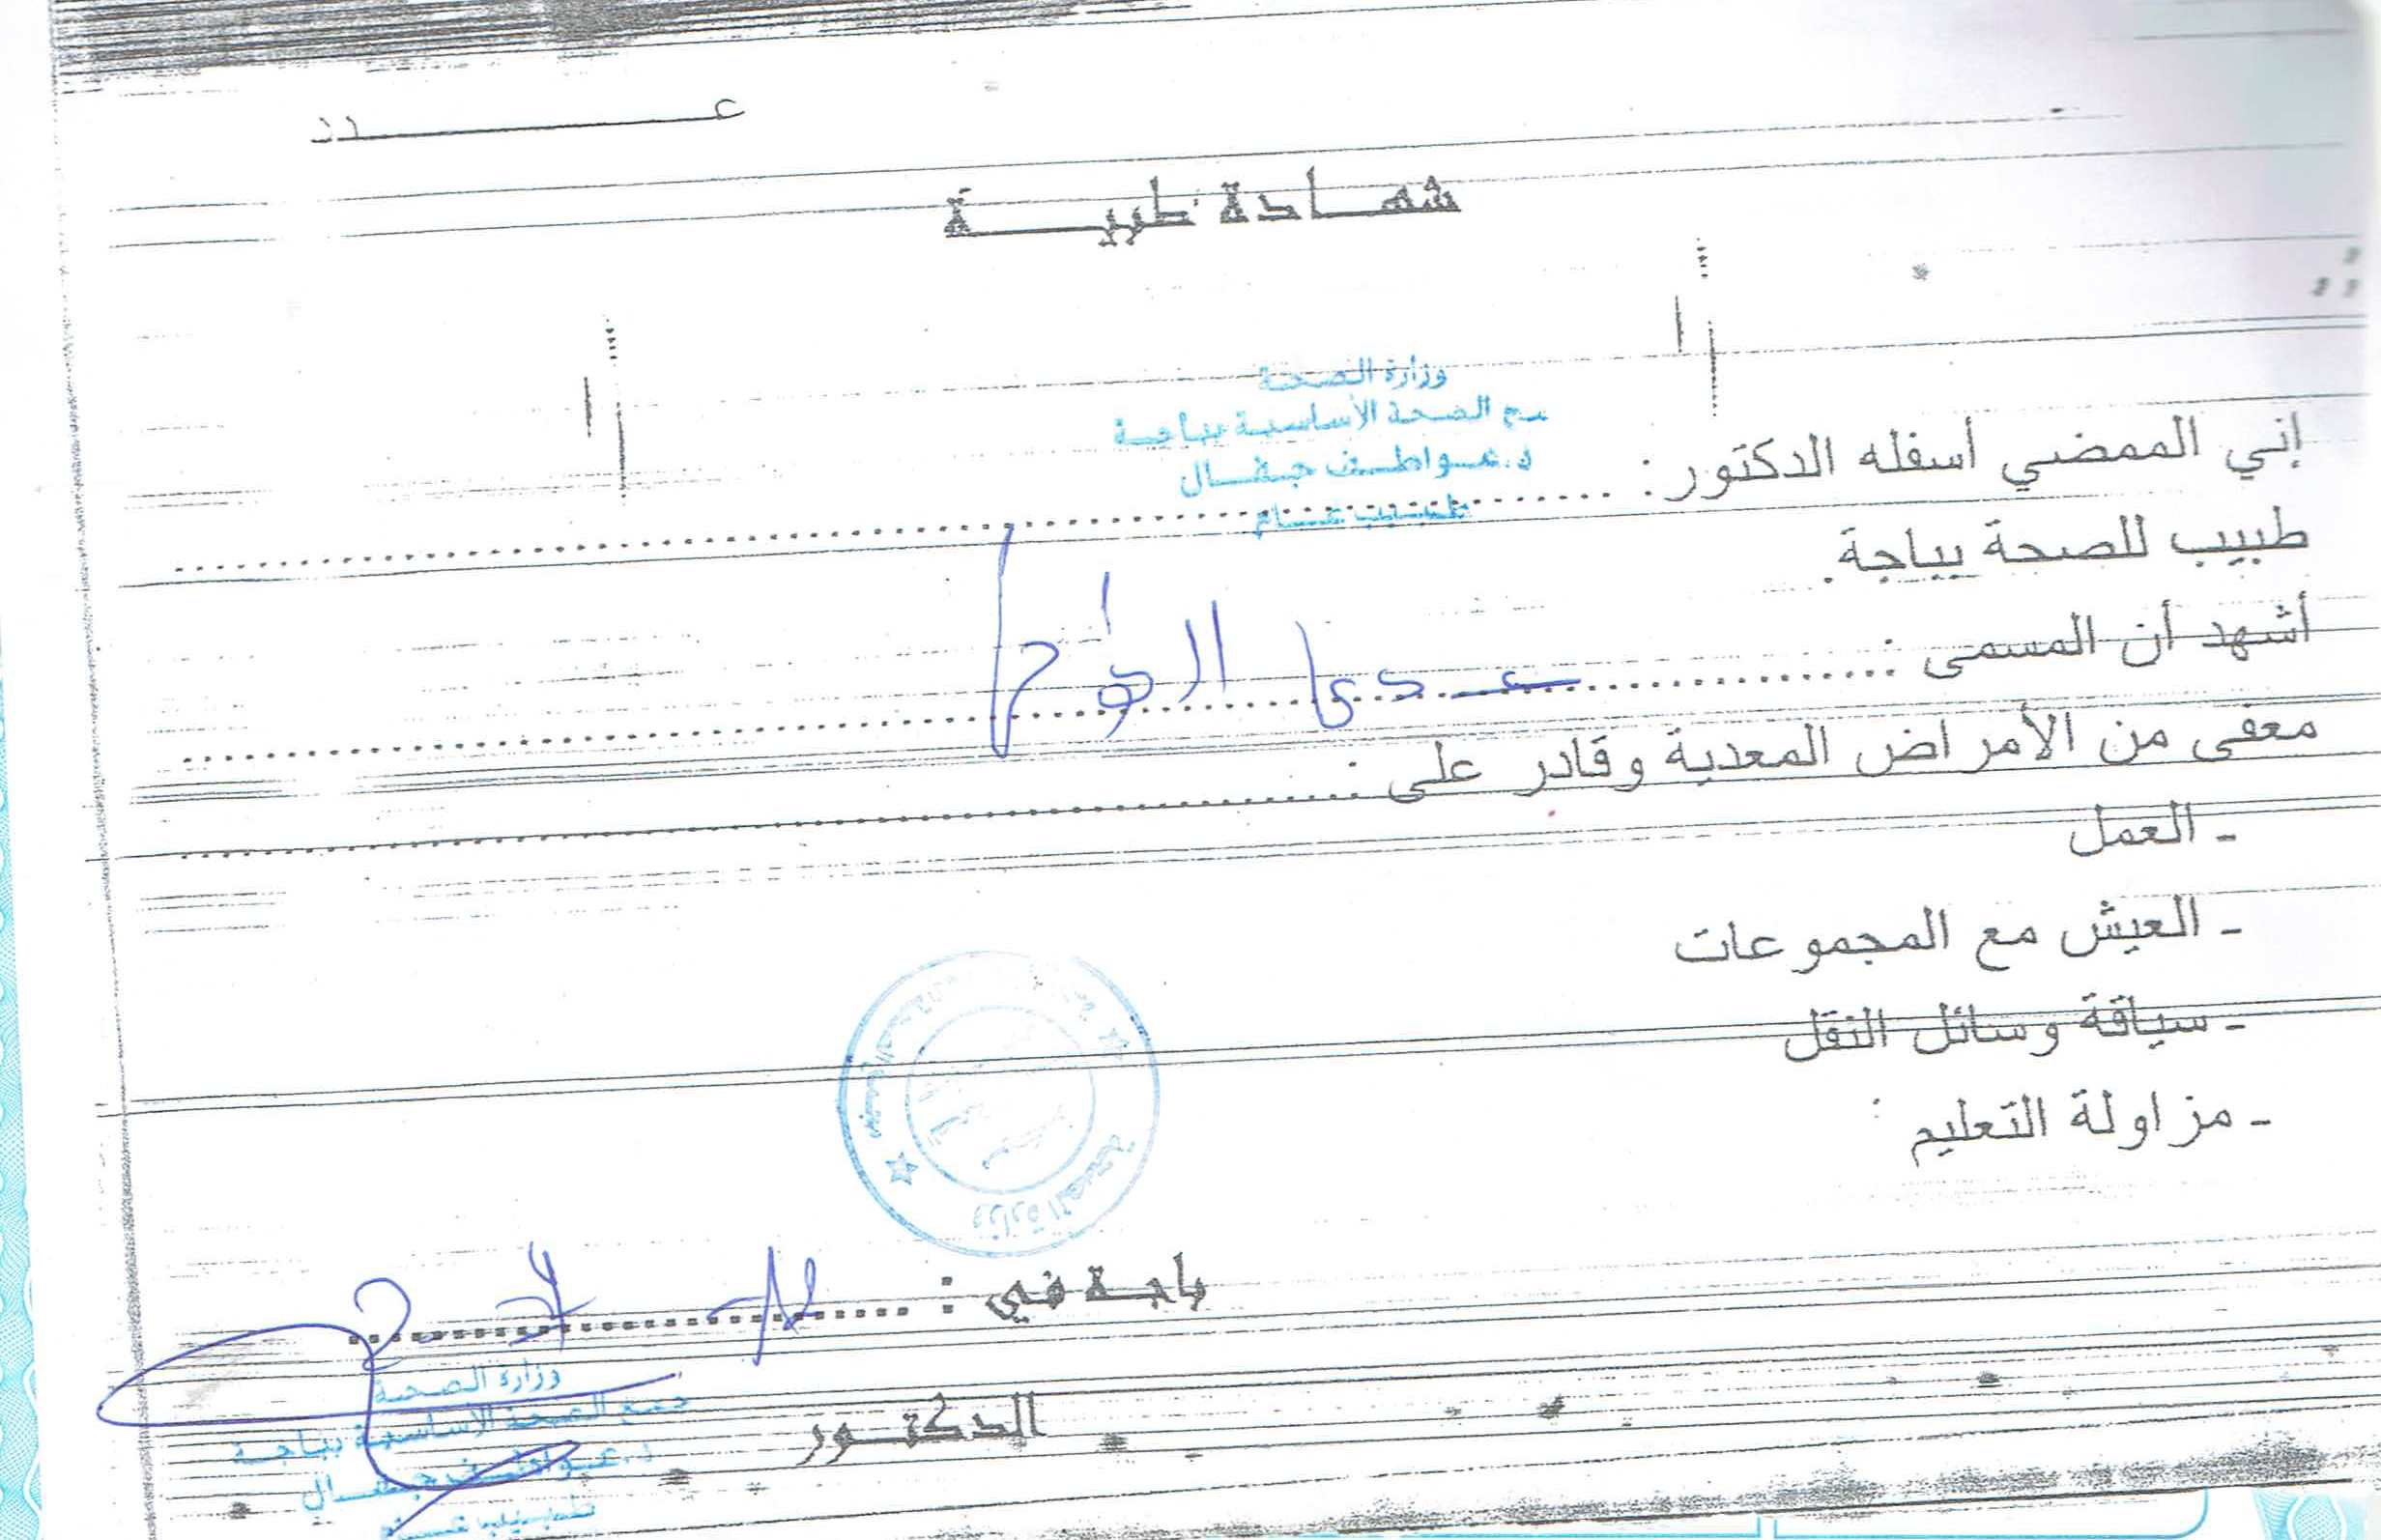 عـــــدد
شهـــادة طبيـــة
وزارة الصحة
مج الصحة الأساسية بباجة
د. عـواطـف جـفـــال
طبـيـب عـــام
إني الممضي أسفله الدكتور :
طبيب للصحة بباجة.
أشهد أن المسمى :
معفى من الأمراض المعدية وقادر على :
- العمل
- العيش مع المجموعات
- سياقة وسائل النقل
- مزاولة التعليم
وزارة الصحة
باجـة في :
الدكتـور
وزارة الصحة
مجمع الصحة الأساسية بباجة
د. عـواطـف جـفـــال
طبـيـب عـــام